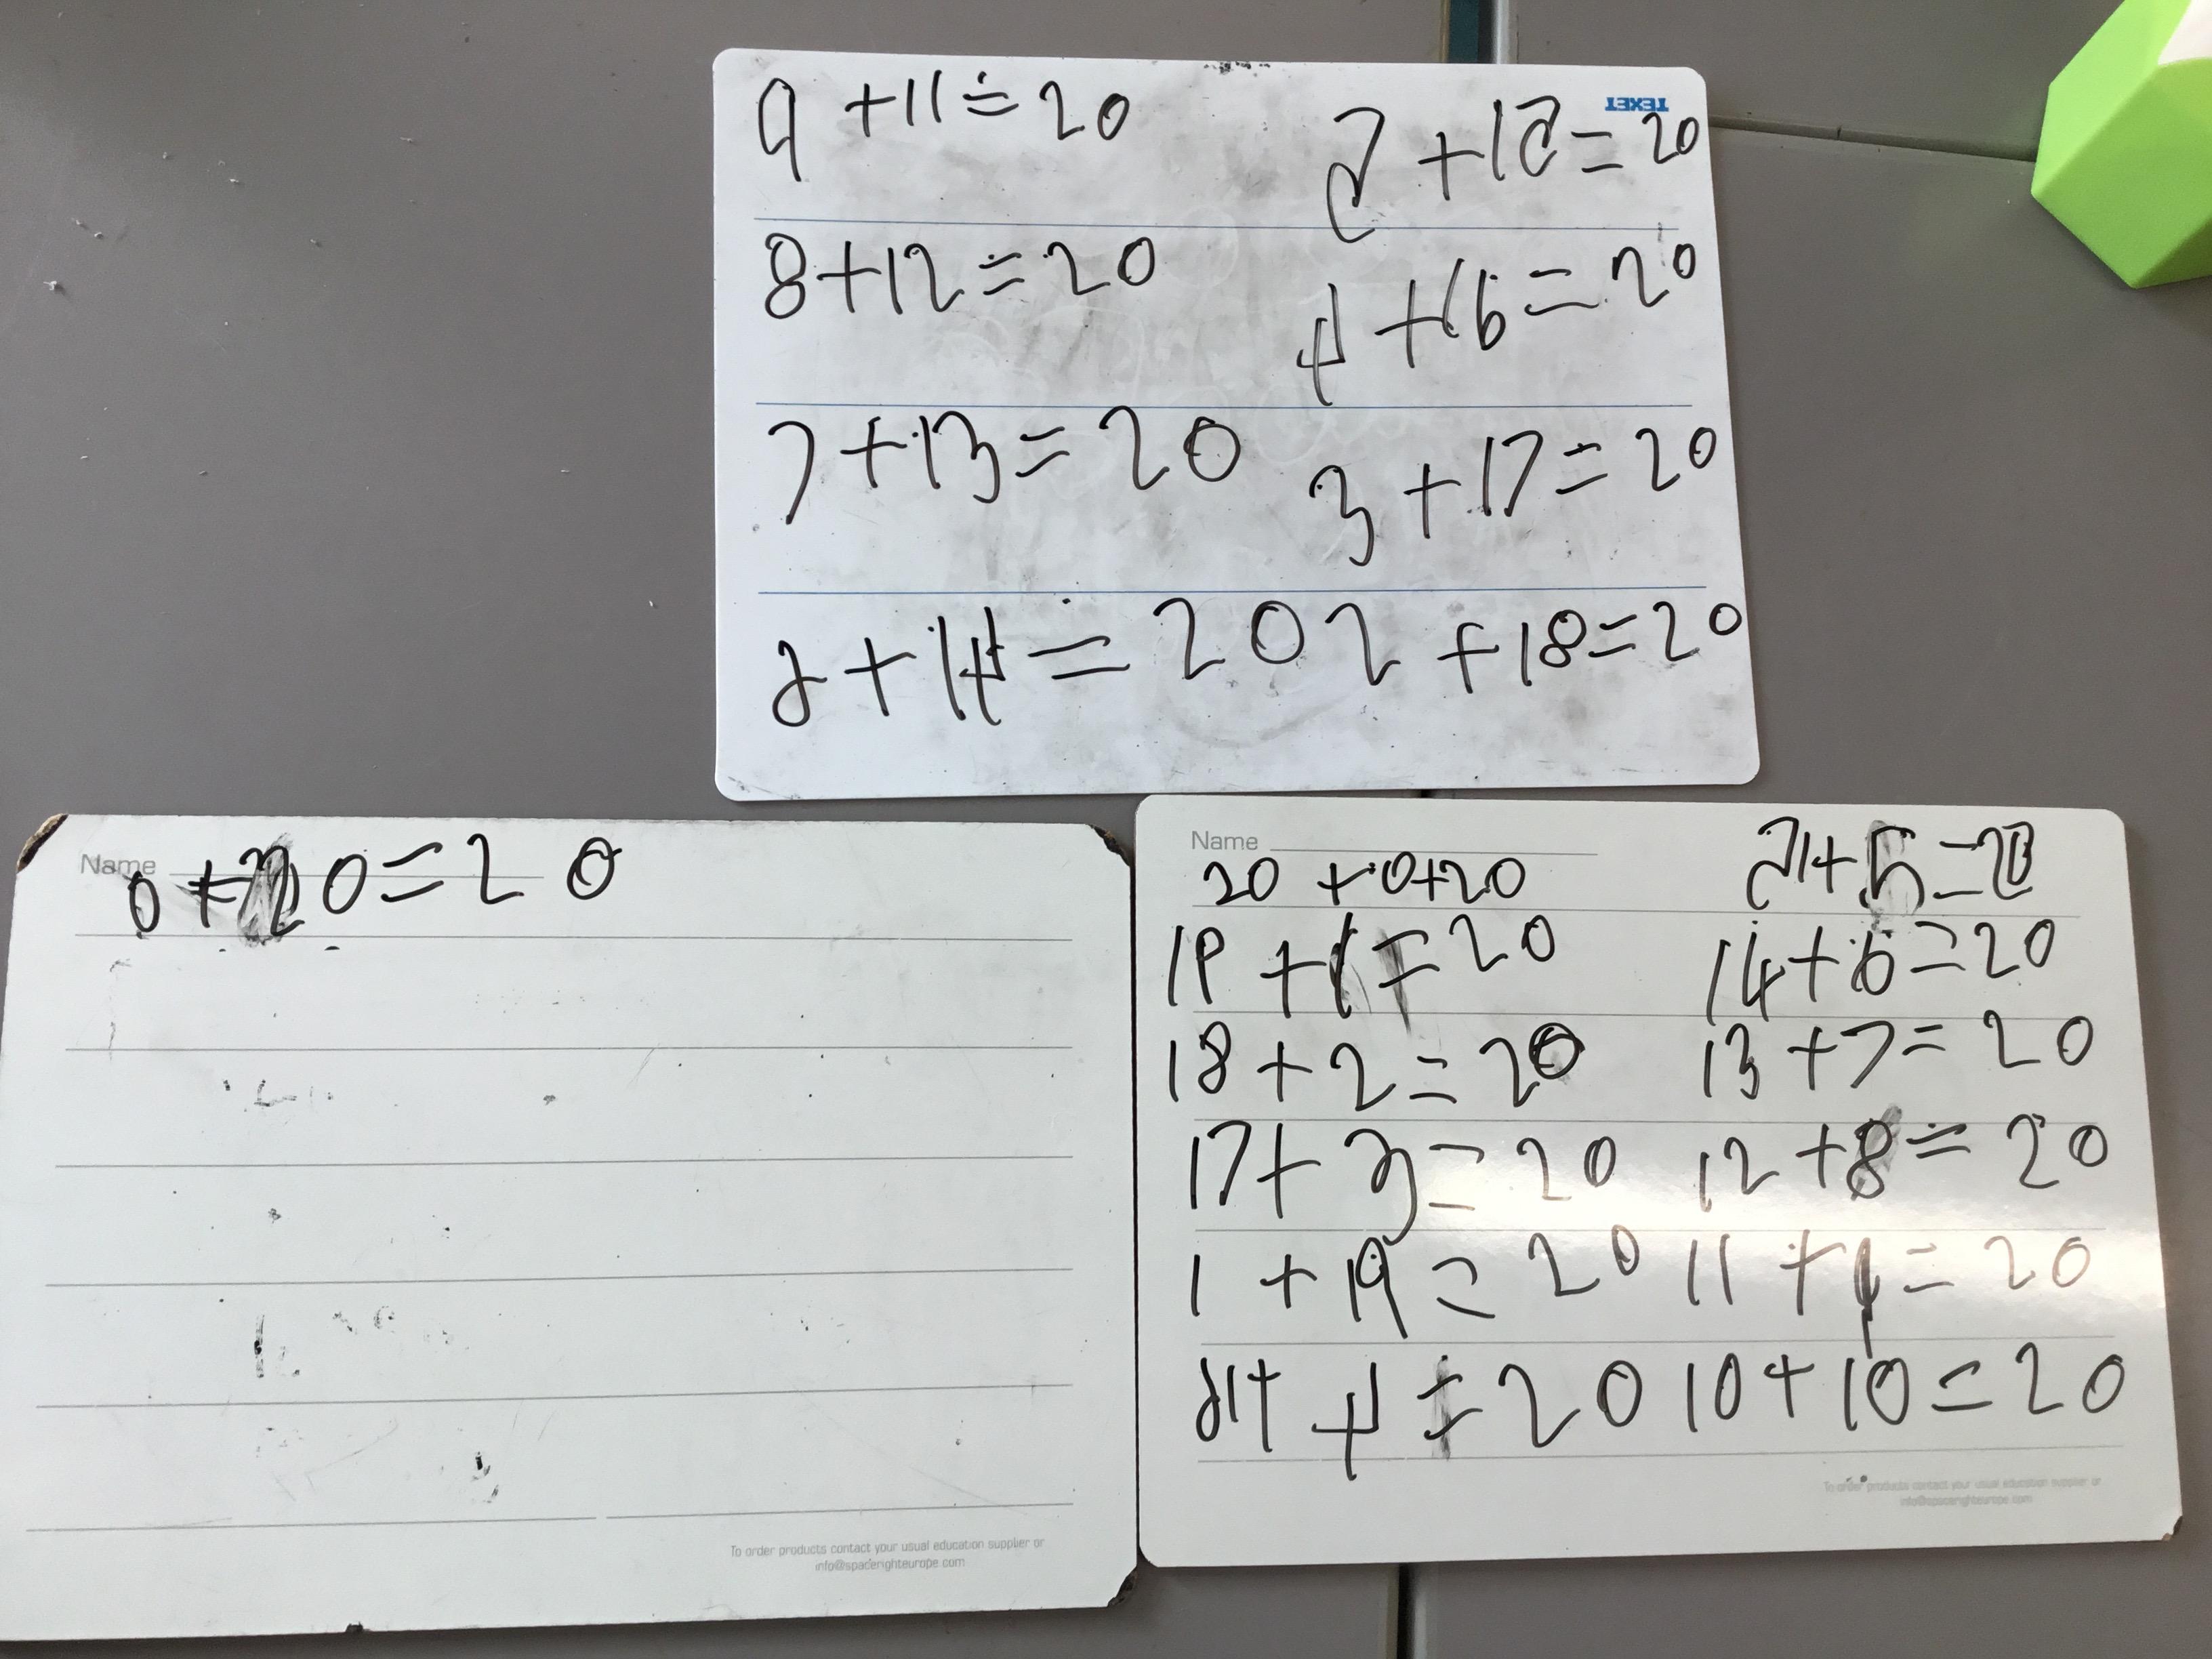 9 +11=20
8+12=20
7+13=20
6+14=20
TEXET
5 +15=20
4 +16=20
3 +17=20
2 +18=20
Name
0 +20=20
To order products contact your usual education supplier or
info@spacerighteurope.com
Name
20 +0+20
19 +1=20
18+2=20
17+3=20
1 +19=20
4=20
51+5=20
14+6=20
13+7=20
12+8=20
11+9=20
10+10=20
To order products contact your usual education supplier or
info@spacerighteurope.com